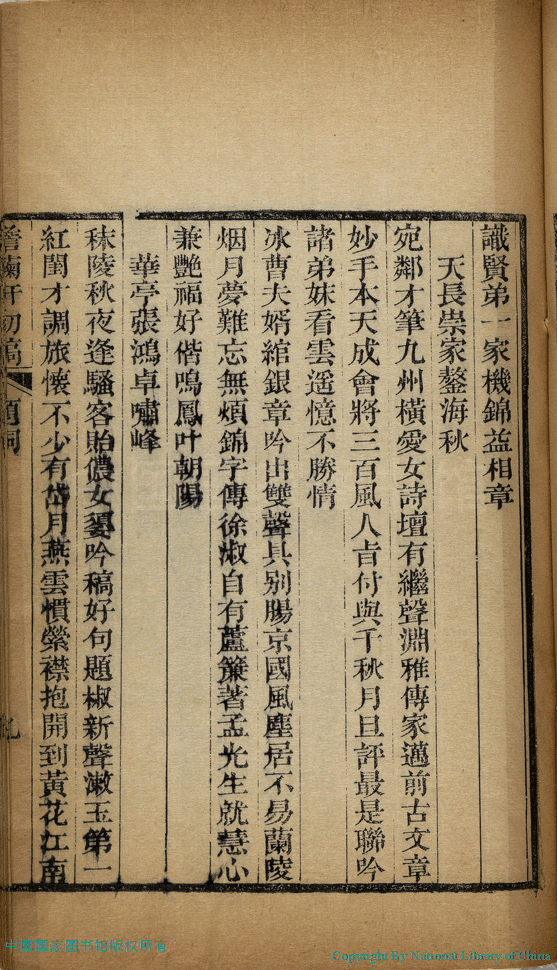 識賢弟一家機錦益相章
天長崇家鏊海秋
宛鄰才筆九州橫愛女詩壇有繼聲淵雅傳家邁前古文章
妙手本天成會將三百風人旨付與千秋月旦評最是聯吟
諸弟妹看雲遥憶不勝情
冰曹夫婿綰銀章吟出雙聲具别腸京國風塵居不易蘭陵
烟月夢難忘無煩錦字傳徐淑自有蘆簾著孟光生就慧心
兼艷福好偕鳴鳳叶朝陽
華亭張鴻卓嘯峰
秣陵秋夜逢騷客貽儂女嬃吟稿好句題椒新聲漱玉第一
紅閨才調旅懷不少有岱月燕雲慣縈襟抱開到黃花江南
軒初稿 題詞 九
中国国家图书馆版权所有
Copyright By National Library of China